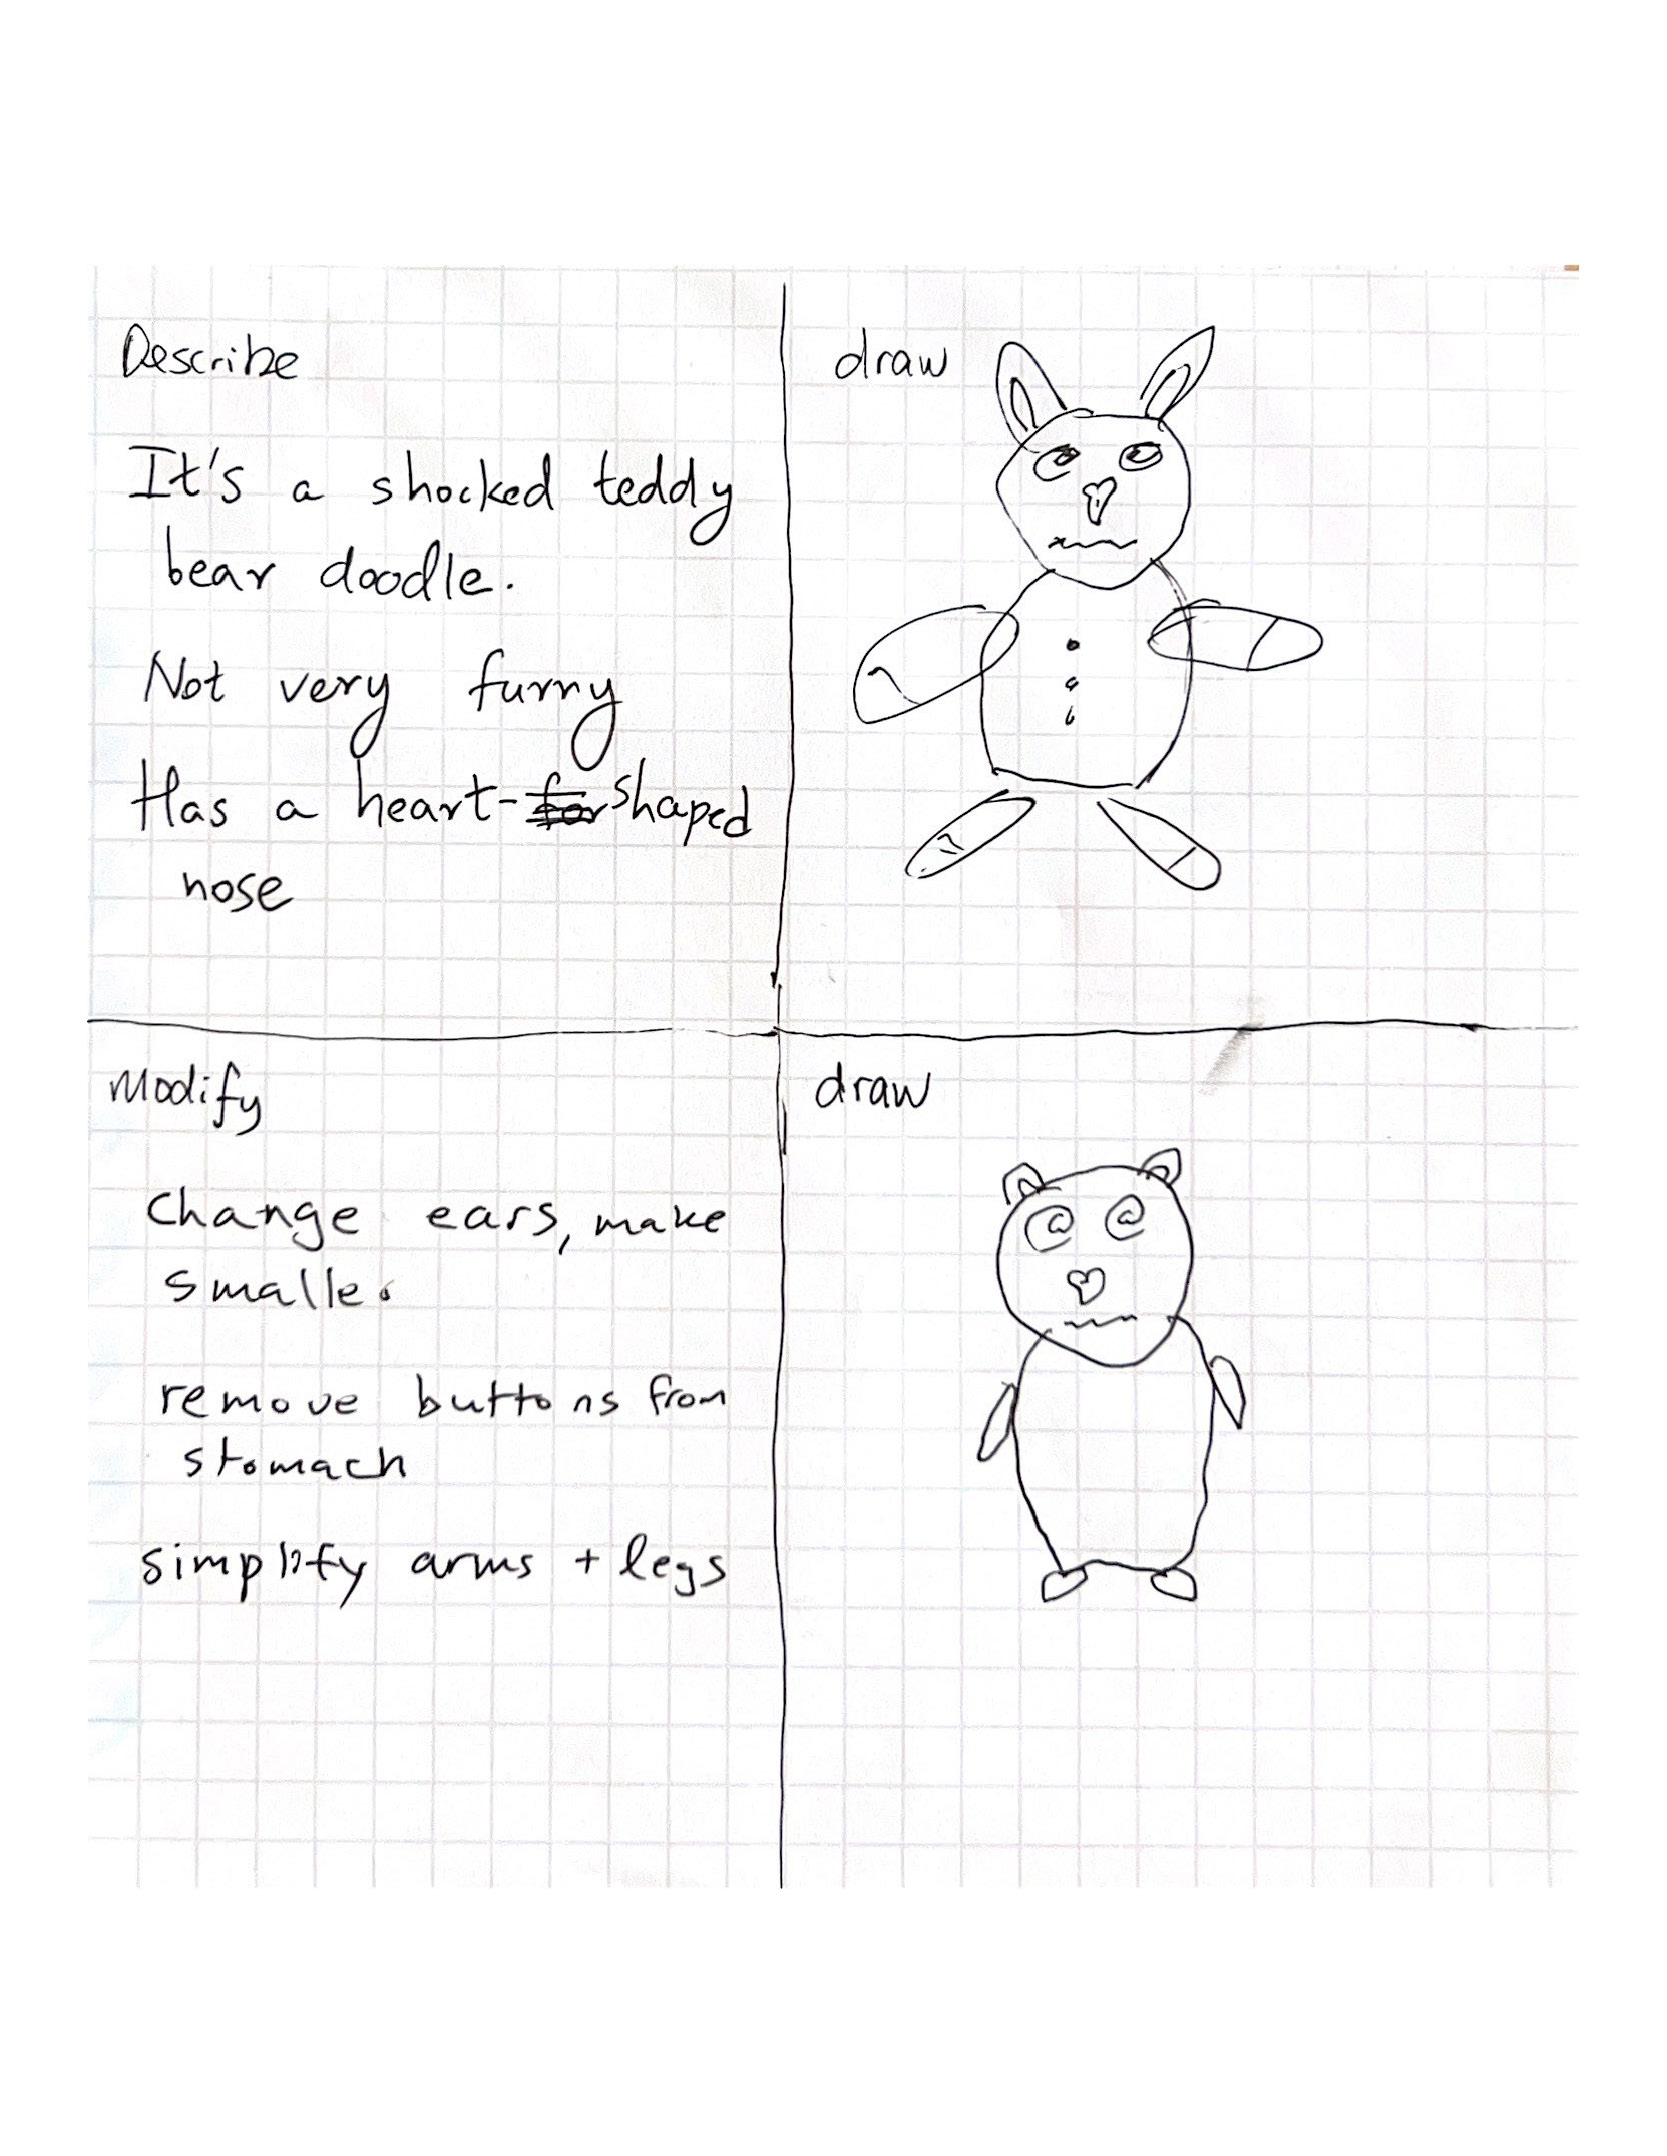 Describe
It's a shocked teddy
bear doodle.
Not very furry
Has a heart-shaped
nose
draw
Modify
Change ears, make
smaller
remove buttons from
stomach
simplify arms + legs
draw